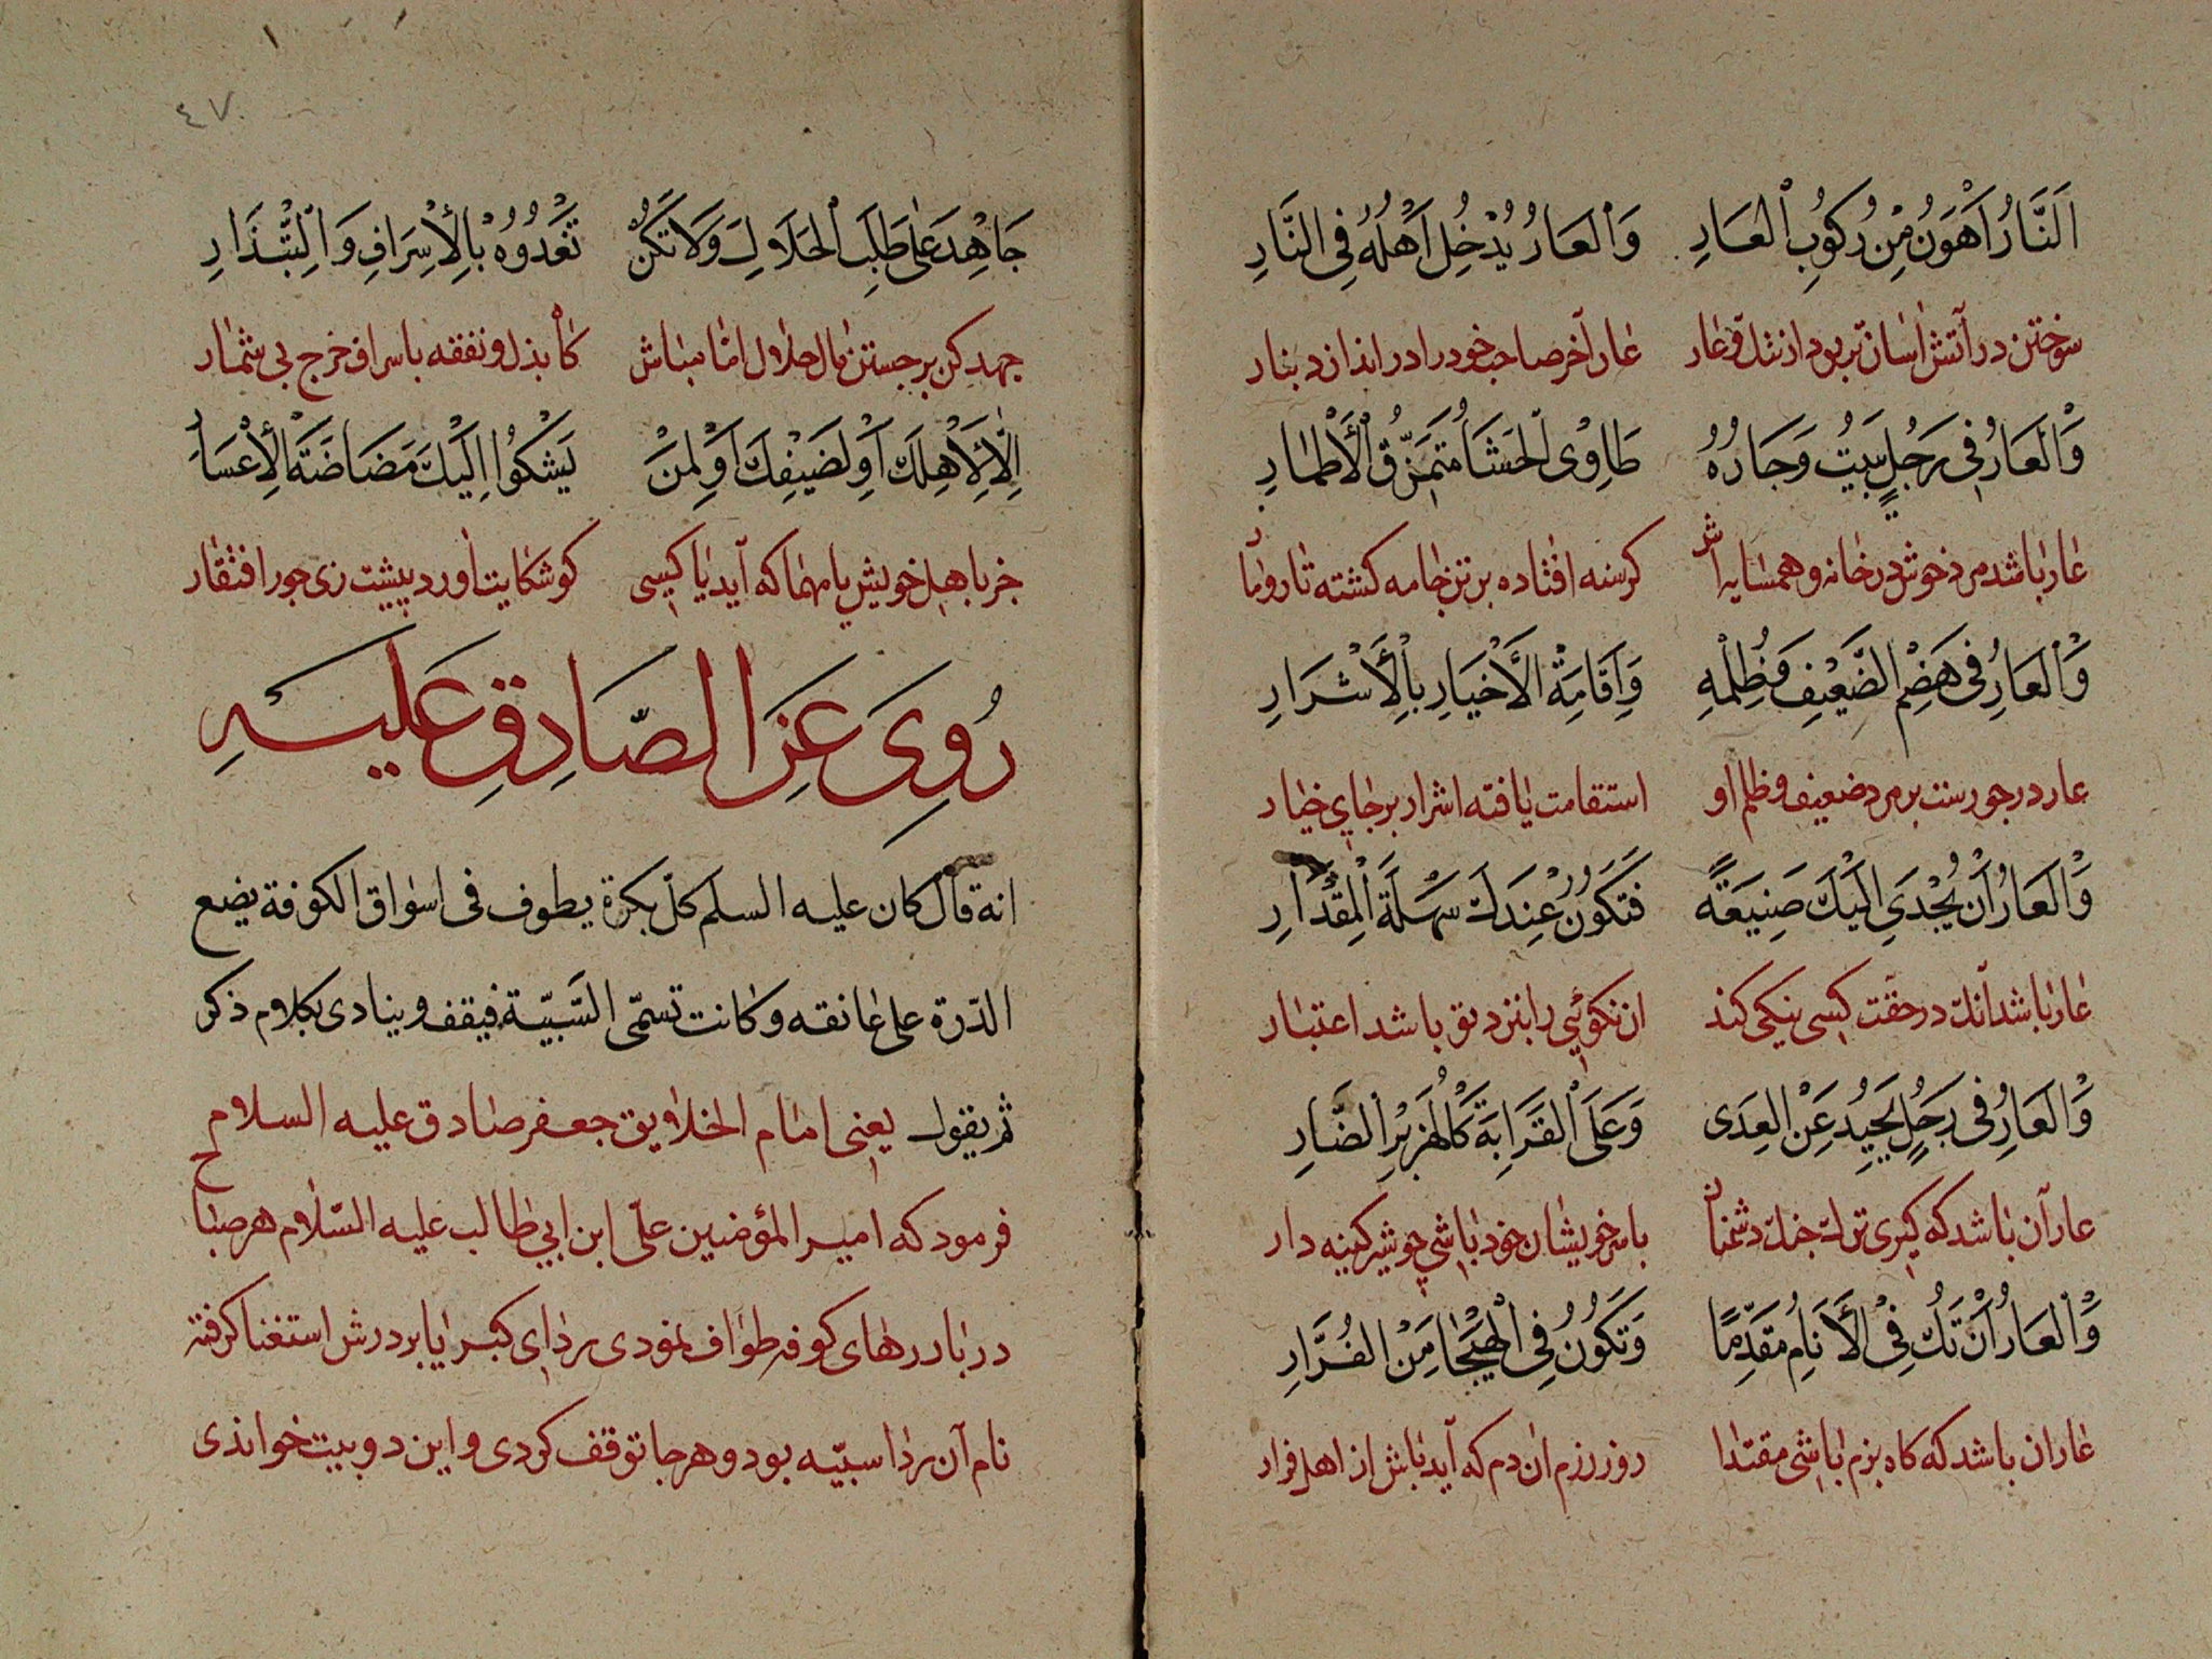 اَلنَّارُ اَهْوَنُ مِنْ رُكُوبِ الْعَارِ وَالْعَارُ يُدْخِلُ اَهْلَهُ فِى النَّارِ
سوختن در آتش اسان تر بود از ننك و عار عار آخر صاحب خود را در اندازد بنار
وَالْعَارُ فِى رَجُلٍ يَبِيتُ وَجَارُهُ طَاوِى الْحَشَا مُتَمَزِّقُ الْأَطْمَارِ
عار باشد مرد خوش در خانه و همسايه اش كرسنه افتاده بر تن جامه كشته تار و مار
وَالْعَارُ فِى هَضْمِ الضَّعِيْفِ وَظُلْمِهِ وَاِقَامَةِ الْأَخْيَارِ بِالْأَشْرَارِ
عار در جورست بر مرد ضعيف و ظلم او استقامت يافته اشرار بر جاى خيار
وَالْعَارُ اَنْ يُجْدَى اِلَيْكَ صَنِيْعَةً فَتَكُوْنُ عِنْدَكَ سَهْلَةَ الْمِقْدَارِ
عار باشد آنك در حقت كسى نيكى كند ان نكوئى را بنزد تو باشد اعتبار
وَالْعَارُ فِى رَجُلٍ يَحِيْدُ عَنْ الْعِدَى وَعَلَى الْقَرَابَةِ كَالْهَزْبَرِ الضَّارِ
عار آن باشد كه كيرى ترك جنك دشمنان بامر خويشان خود باشى چو شير كينه دار
وَالْعَارُ اَنْ تَكُ فِىْ الْأَنَامِ مُقَدَّمًا وَتَكُوْنُ فِى الْهَيْجَا مِنَ الْفُرَّارِ
عار ان باشد كه كاه بزم باشى مقتدا روز رزم ان دم كه آيد باش از اهل فرار
٤٧
جَاهِدْ عَلَى طَلَبِ الْحَلَالِ وَلَا تَكُنْ تَغْدُوْهُ بِالْإِسْرَافِ وَالتِّبْذَارِ
جهد كن بر جستن مال حلال اما مباش كاه بذل و نفقه باسراف خرج بى شمار
اِلَّا لِأَهْلِكَ اَوْ لِضَيْفِكَ اَوْ لِمَنْ يَشْكُوا اِلَيْكَ مَضَاضَةَ الْأَعْسَارِ
جز باهل خويش يا مهما كه آيد يا كسى كو شكايت اورد پيشت زى جور افتقار
رُوِىَ عَنِ الصَّادِقِ عَلَيْهِ
انه قال كان عليه السلم كلّ بكرة يطوف فى اسواق الكوفة يضع
الدّرة على عاتقه و كانت تسمّى السَّبِيّة فيقف و ينادى بكلام ذكر
ثم يقول يعنى امام الخلايق جعفر صادق عليه السلام
فرمود كه امير المؤمنين علّى ابن ابى طالب عليه السّلام هر صباح
در بازرهاى كوفه طواف نمودى رداى كبريا بر درش استغنا كرفته
نام آن ردا سبيّه بود و هر جا توقف كردى و اين دو بيت خواندى